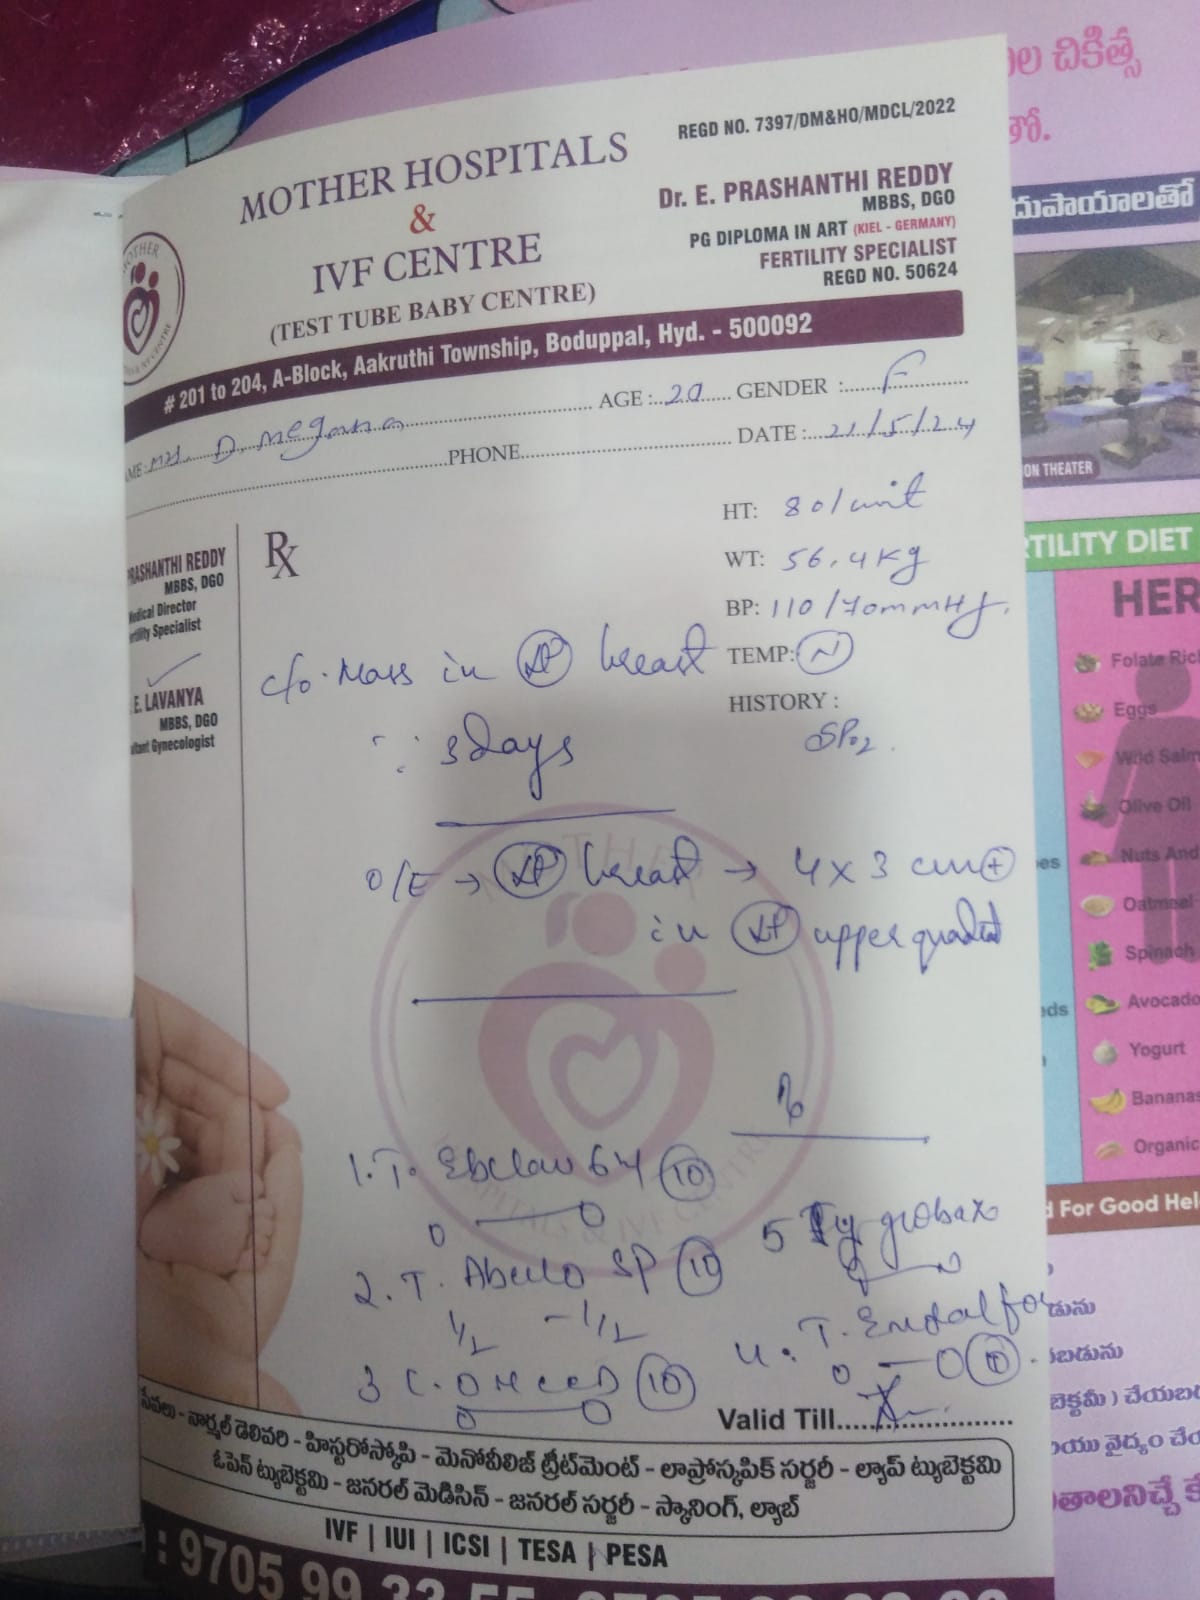 ల చికిత్స
తో.
దుపాయాలతో
MOTHER HOSPITALS
&
IVF CENTRE
(TEST TUBE BABY CENTRE)
REGD NO. 7397/DM&HO/MDCL/2022
Dr. E. PRASHANTHI REDDY
MBBS, DGO
PG DIPLOMA IN ART (KIEL - GERMANY)
FERTILITY SPECIALIST
REGD NO. 50624
MOTHER
# 201 to 204, A-Block, Aakruthi Township, Boduppal, Hyd. - 500092
AME: Mrs. D. Megana AGE: 20 GENDER : F
PHONE DATE : 21/5/24
HT: 80/unit
WT: 56.4 Kg
BP: 110/70mmHg.
TEMP: N
HISTORY :
SPO2.
PRASHANTHI REDDY
MBBS, DGO
edical Director
ertility Specialist
E. LAVANYA
MBBS, DGO
ultant Gynecologist
Rx
c/o. Mass in breast
3days
O/E → breast → 4 x 3 cm +
in upper
1. T. 10
0 — 0
2. T. SP 10
1/2 - 1/2
3 C. 10
0 — 0
4. T.
0 — 0 10
5
Valid Till
సేవలు - నార్మల్ డెలివరి - హిస్టరోస్కోపి - మెనోపీలిజ్ ట్రీట్‌మెంట్ - లాప్రోస్కపిక్ సర్జరీ - ల్యాప్ ట్యుబెక్టమి
ఓపెన్ ట్యుబెక్టమి - జనరల్ మెడిసిన్ - జనరల్ సర్జరీ - స్కానింగ్, ల్యాబ్
IVF | IUI | ICSI | TESA | PESA
: 9705 99 33 55
ON THEATER
RTILITY DIET
HER
Folate Ric
Eggs
Wild Salm
Olive Oil
Nuts And
Oatmeal
Spinach
Avocado
Yogurt
Bananas
Organic
d For Good Hel
డును
బడును
బెక్టమీ ) చేయబడ
యు వైద్యం చే
తాలనిచ్చే కే